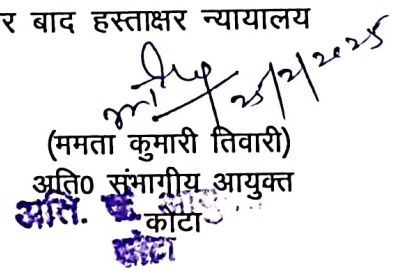 र बाद हस्ताक्षर न्यायालय
25/2/2025
(ममता कुमारी तिवारी)
अति0 संभागीय आयुक्त
अति.
कोटा
कोटा